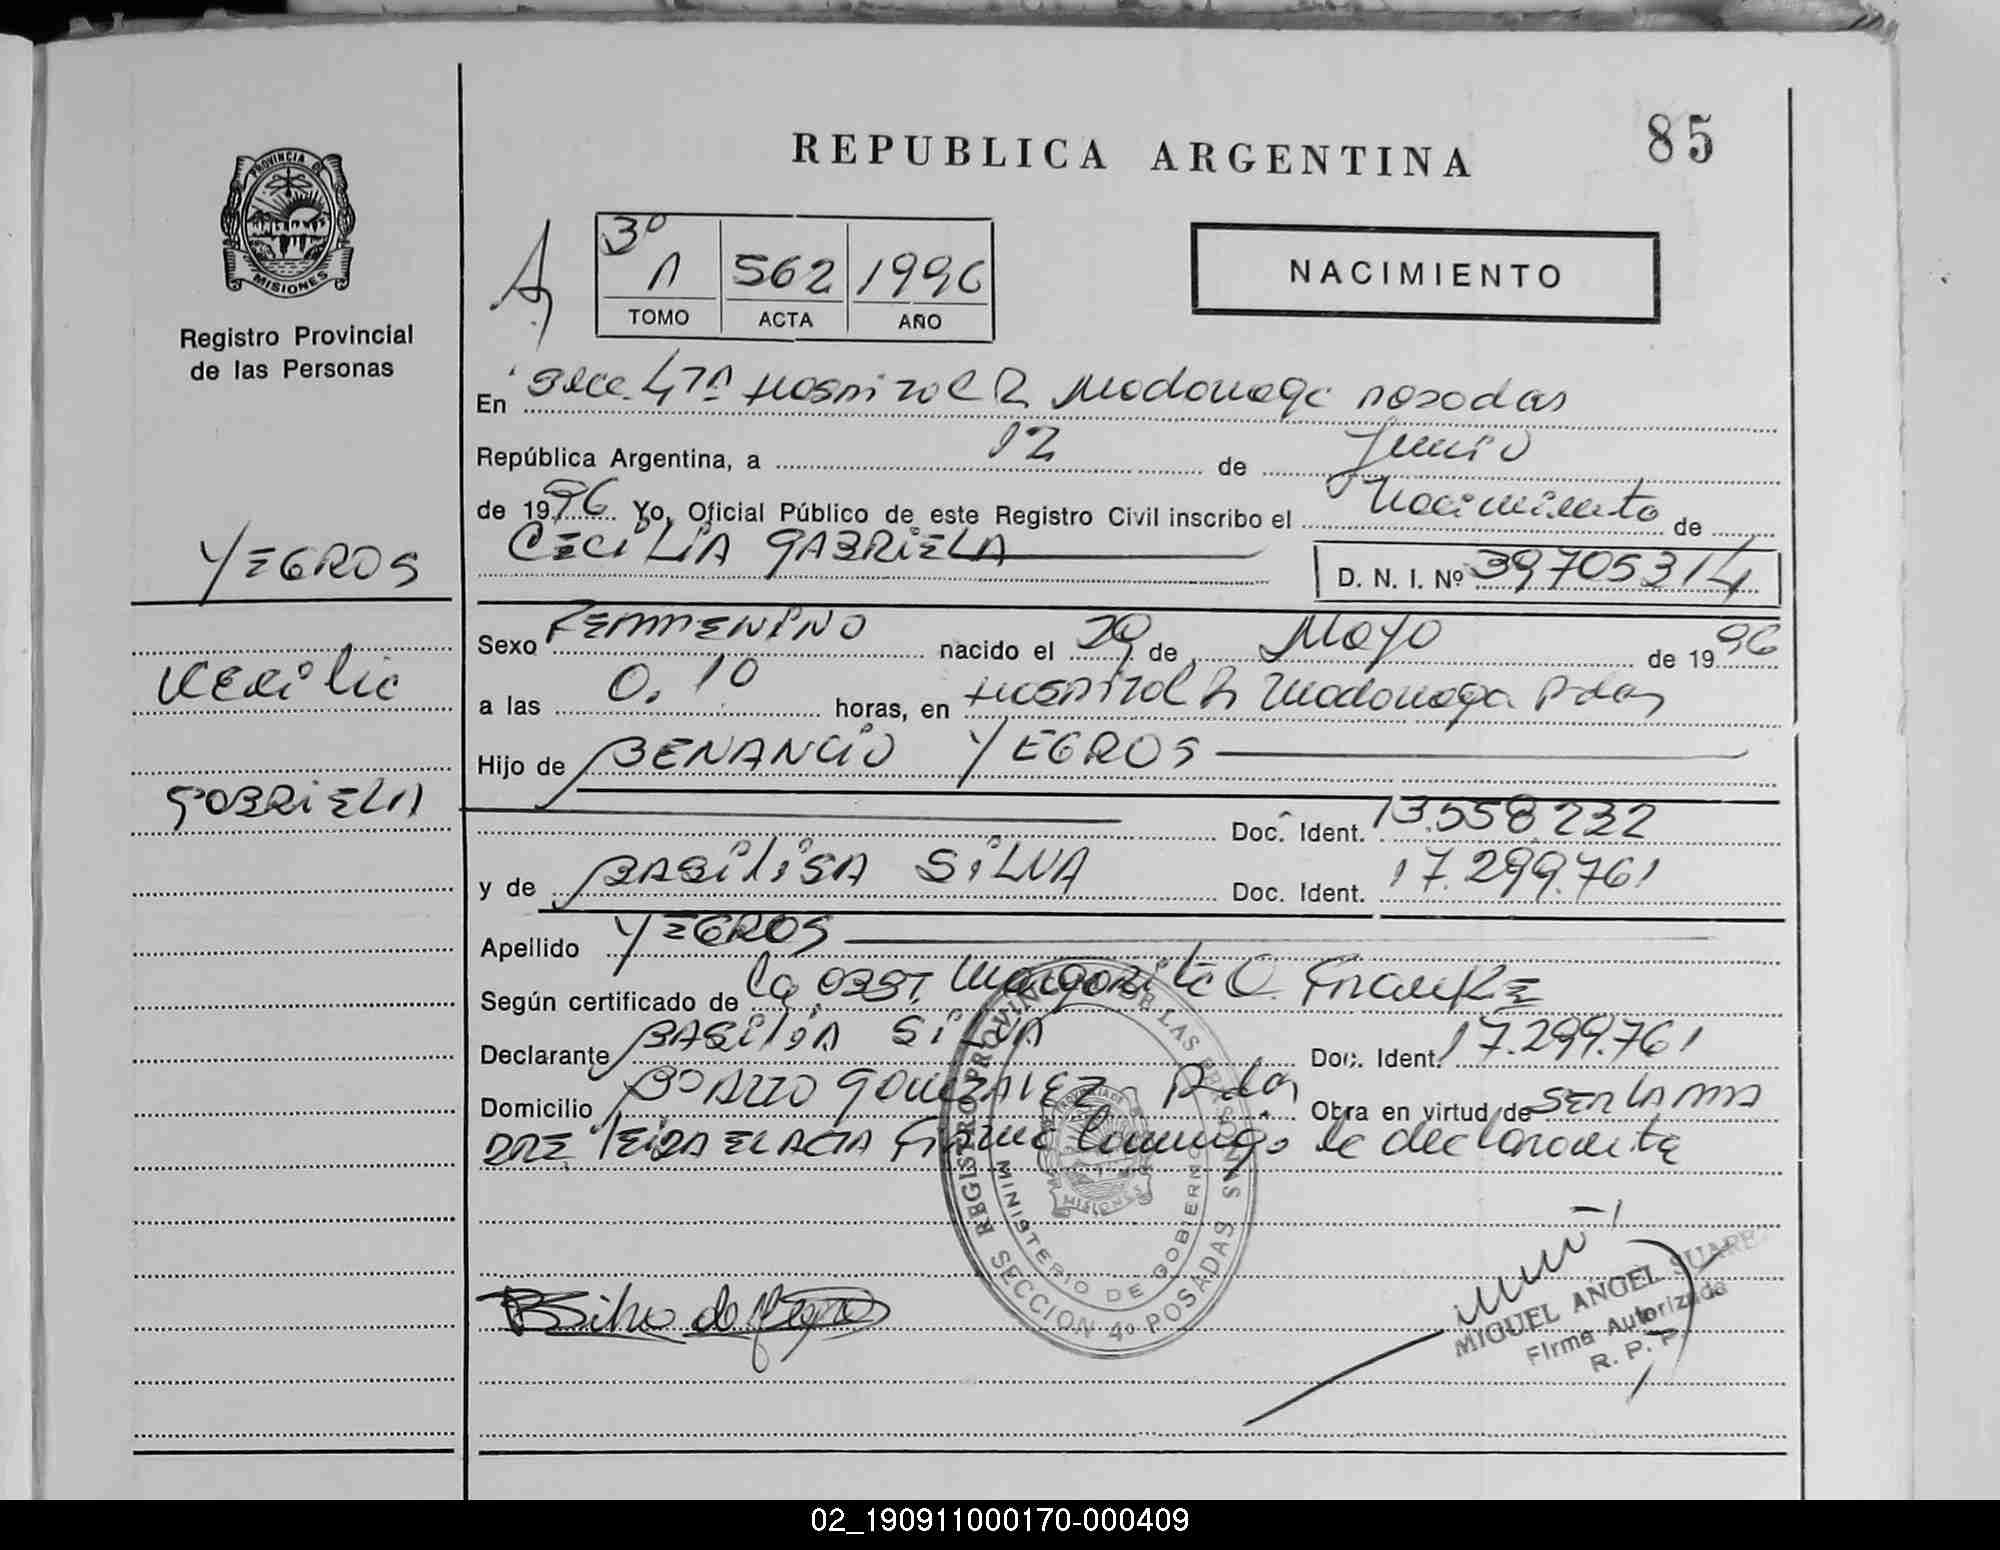 REPUBLICA ARGENTINA
85
PROVINCIA DE
MISIONES
Registro Provincial
de las Personas
3º
562 1996
TOMO ACTA AÑO
NACIMIENTO
En Secc. 4TA Hospital R Madariaga Posadas
República Argentina, a 12 de Junio
de 1996 Yo, Oficial Público de este Registro Civil inscribo el Nacimiento de
CECILIA GABRIELA D. N. I. Nº 39705314
YEGROS
Cecilia
GABRIELA
Sexo FEMMENINO nacido el 29 de Mayo de 1996
a las 0.10 horas, en Hospital R Madariaga Pdas
Hijo de BENANCIO YEGROS
Doc. Ident. 13.558232
y de BASILISA SILVA Doc. Ident. 17.299.761
Apellido YEGROS
Según certificado de la OBST. Margarita O. Franke
Declarante SILVA Doc. Ident. 17.299.761
Domicilio Bº GONZALEZ Pdas Obra en virtud de SER LA MA
DRE leida EL ACTA Firma Conmigo la declarante
REGISTRO PROVINCIAL DE LAS PERSONAS
MINISTERIO DE GOBIERNO
MISIONES
SECCION 4º POSADAS
MIGUEL ANGEL SUAREZ
Firma Autorizada
R. P. P.
02_190911000170-000409